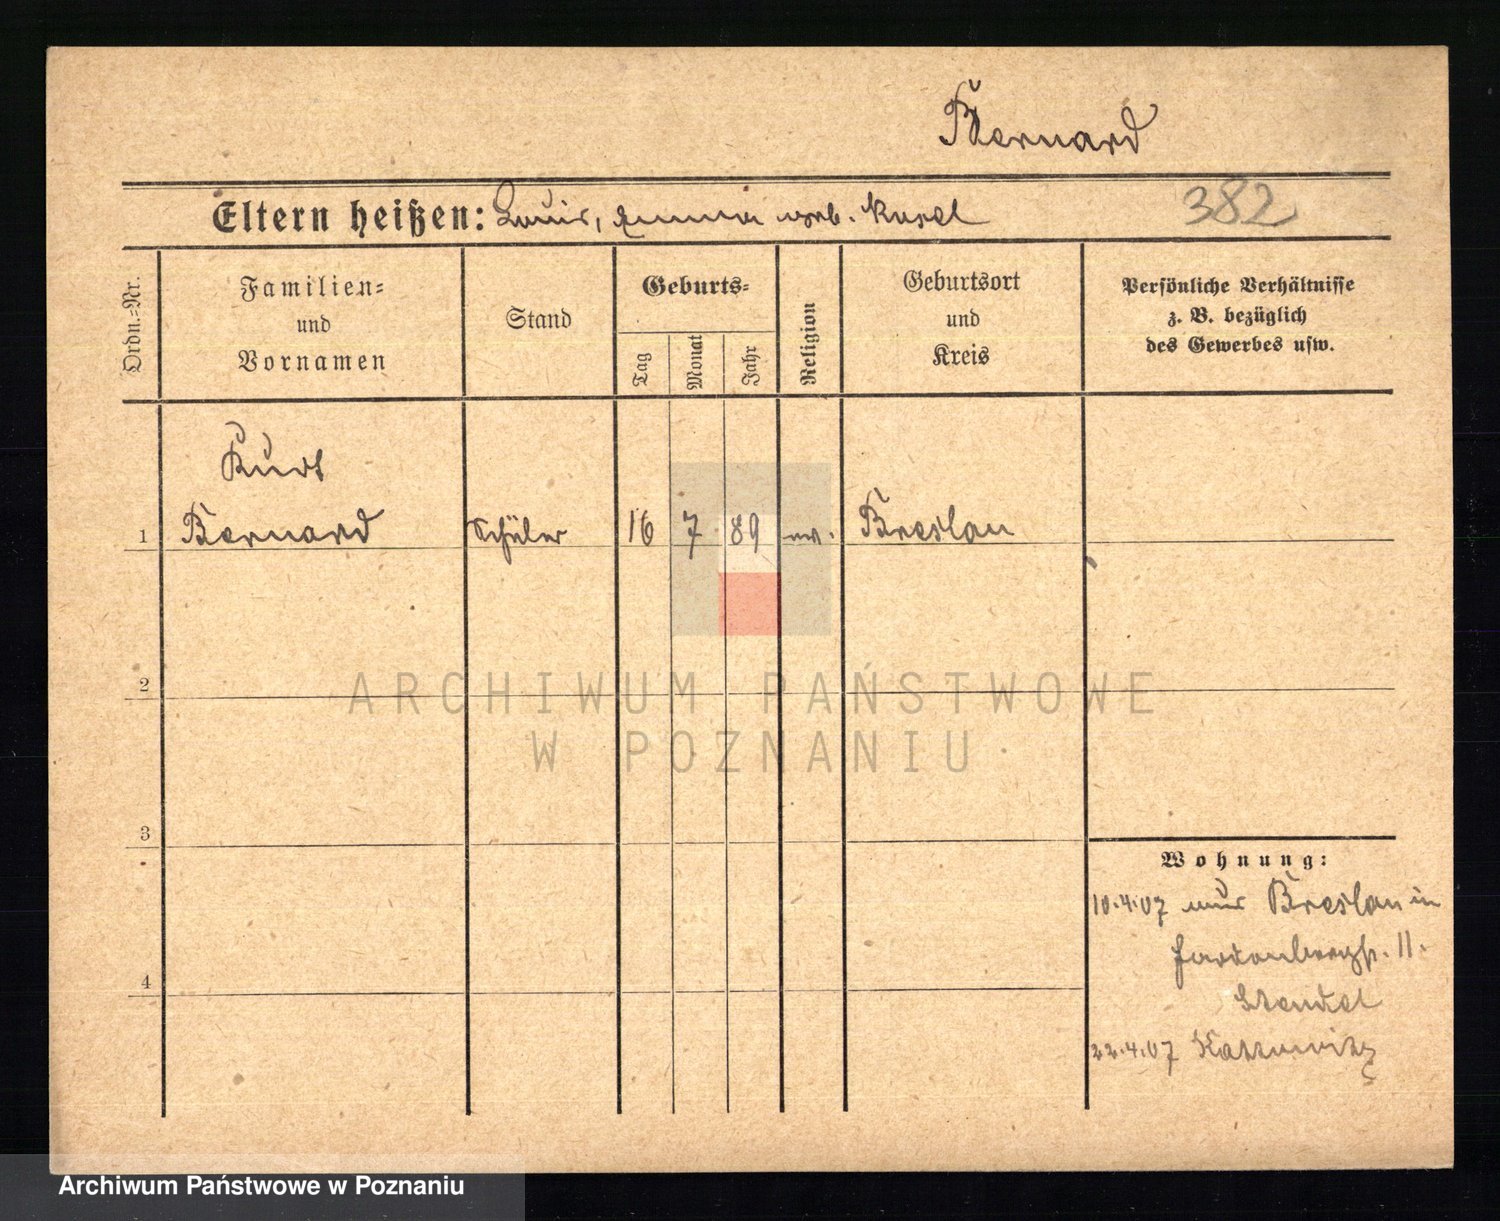 Bernard
Eltern heißen: Louis, Emma geb. Kusel
382
Ordn.=Nr.
Familien=
und
Vornamen
Stand
Geburts=
Tag
Monat
Jahr
Religion
Geburtsort
und
Kreis
Persönliche Verhältnisse
z. B. bezüglich
des Gewerbes usw.
Kurt
1 Bernard Schüler 16 7 89 Breslau
2
3
4
Wohnung:
10.4.07 aus Breslau in
11.
Wendel
22.4.07 Kattowitz
ARCHIWUM PAŃSTWOWE
W POZNANIU
Archiwum Państwowe w Poznaniu